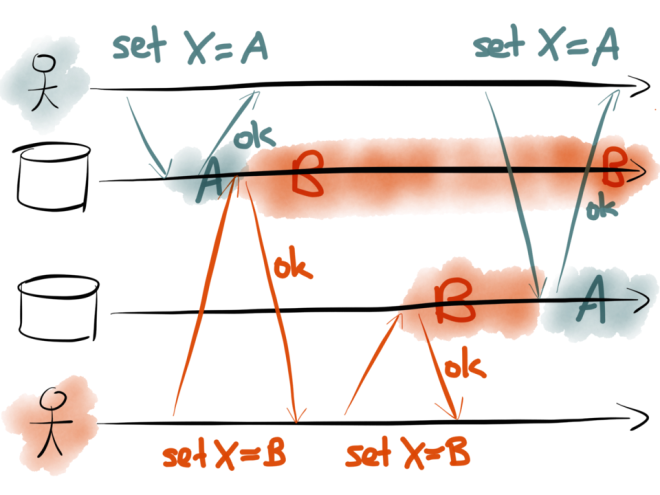 set X=A
set X=A
ok
A
B
B
ok
ok
B
A
ok
set X=B
set X=B